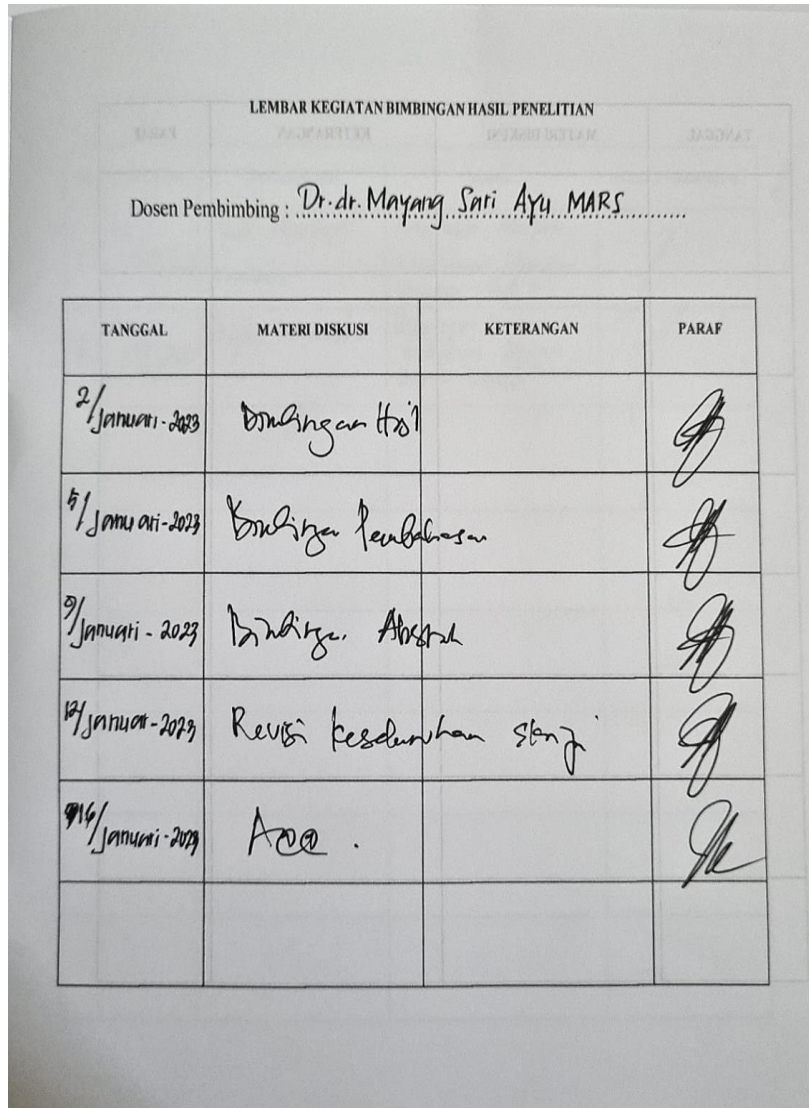 LEMBAR KEGIATAN BIMBINGAN HASIL PENELITIAN
Dosen Pembimbing : Dr. dr. Mayang Sari Ayu MARS
TANGGAL MATERI DISKUSI KETERANGAN PARAF
2/Januari-2023 Bimbingan Hasil
5/Januari-2023 Bimbingan Pembahasan
9/Januari-2023 Bimbingan Abstrak
12/Januar-2023 Revisi keseluruhan skripsi
16/Januari-2023 Acc.